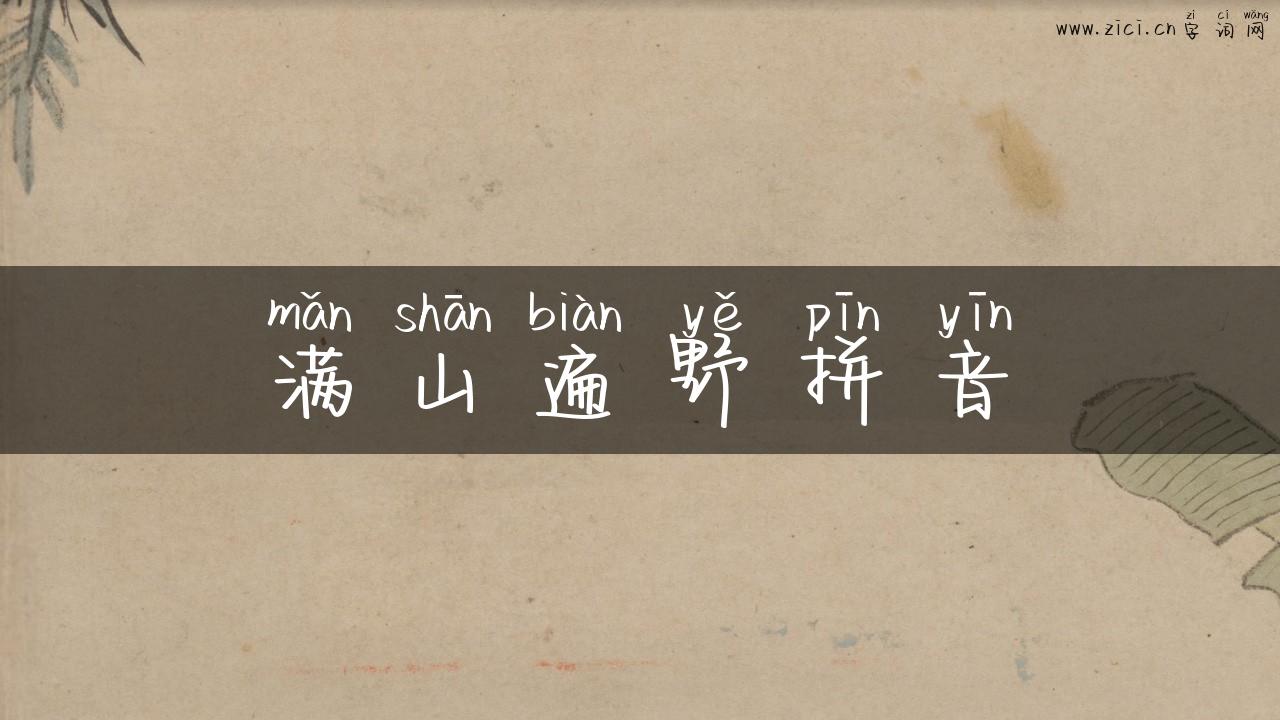 zì cí wǎng
www.zici.cn 字词网
mǎn shān biàn yě pīn yīn
满山遍野拼音